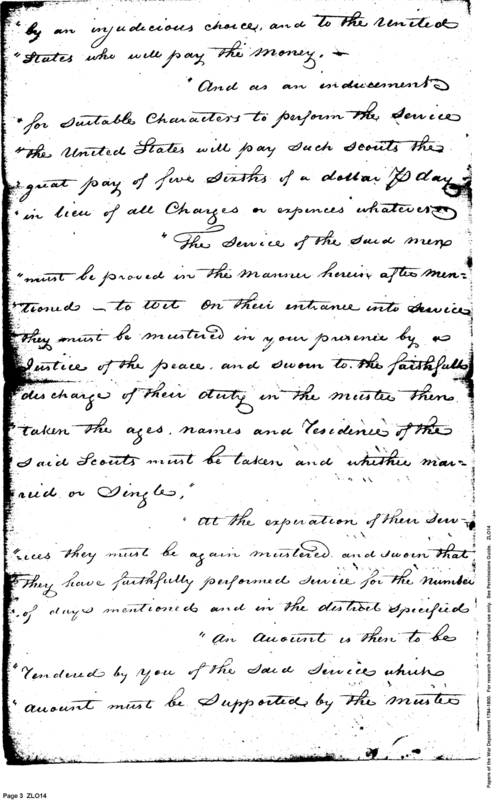 "by an injudicious choice, and to the United
"States who will pay the money. —
"And as an inducement
"for suitable Characters to perform the Service
"the United States will pay such Scouts the
"great pay of five Sixths of a dollar ⅌ day
"in lieu of all Charges or expences whatever
"The Service of the said men
"must be proved in the manner herein after men-
"tioned – to wit On their entrance into Service
"they must be mustered in your presence by a
Justice of the peace, and sworn to the faithfull
discharge of their duty in the muster then
taken the ages, names and residence of the
said Scouts must be taken and whether mar-
-ried or Single."
"At the experation of their Serv-
"ices they must be again mustered and sworn that
"they have faithfully performed service for the number
"of days mentioned and in the district specified
"An Account is then to be
"rendered by you of the said Service which
"Account must be Supported by the muster
Page 3 ZLO14
Papers of the War Department 1784-1800. For research and instructional use only. See Permissions Guide. ZLO14